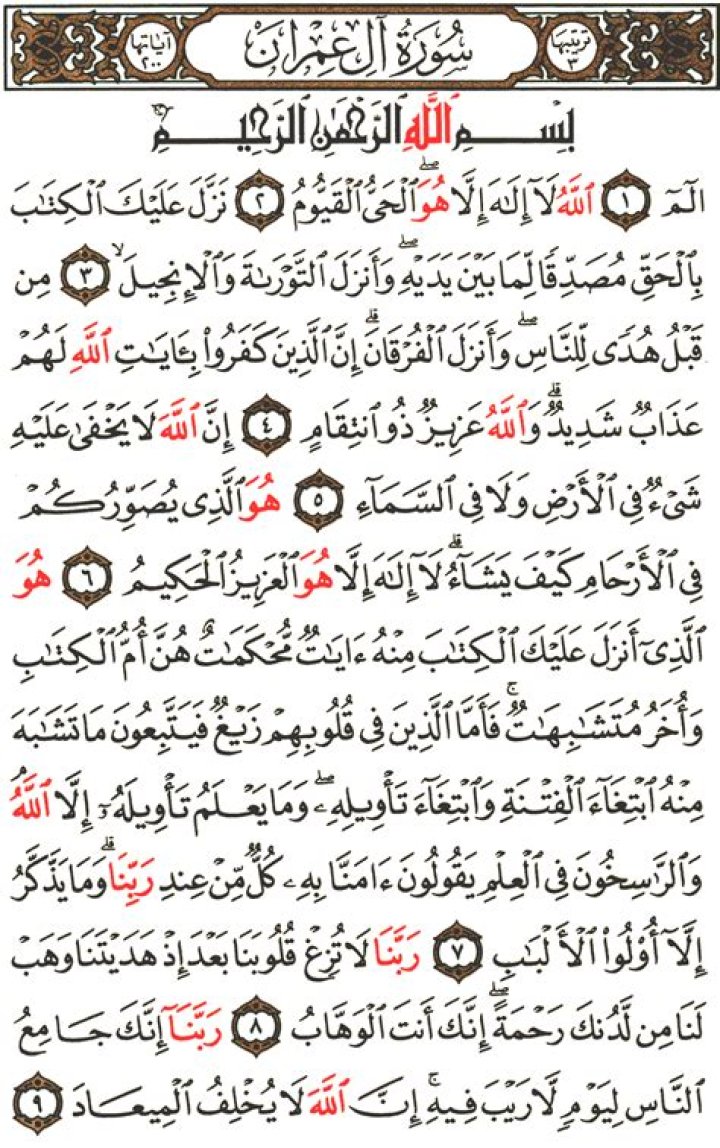 ترتيبها ٣ سُورَةُ آلِ عِمْرَان آياتها ٢٠٠
بِسْمِ ٱللَّهِ ٱلرَّحْمَٰنِ ٱلرَّحِيمِ
الٓمٓ ١ ٱللَّهُ لَآ إِلَٰهَ إِلَّا هُوَ ۖ ٱلْحَىُّ ٱلْقَيُّومُ ٢ نَزَّلَ عَلَيْكَ ٱلْكِتَٰبَ
بِٱلْحَقِّ مُصَدِّقًا لِّمَا بَيْنَ يَدَيْهِ ۖ وَأَنزَلَ ٱلتَّوْرَىٰةَ وَٱلْإِنجِيلَ ۙ ٣ مِن
قَبْلُ هُدًى لِّلنَّاسِ ۖ وَأَنزَلَ ٱلْفُرْقَانَ ۗ إِنَّ ٱلَّذِينَ كَفَرُوا۟ بِـَٔايَٰتِ ٱللَّهِ لَهُمْ
عَذَابٌ شَدِيدٌ ۗ وَٱللَّهُ عَزِيزٌ ذُو ٱنتِقَامٍ ٤ إِنَّ ٱللَّهَ لَا يَخْفَىٰ عَلَيْهِ
شَىْءٌ فِى ٱلْأَرْضِ وَلَا فِى ٱلسَّمَآءِ ٥ هُوَ ٱلَّذِى يُصَوِّرُكُمْ
فِى ٱلْأَرْحَامِ كَيْفَ يَشَآءُ ۗ لَآ إِلَٰهَ إِلَّا هُوَ ٱلْعَزِيزُ ٱلْحَكِيمُ ٦ هُوَ
ٱلَّذِىٓ أَنزَلَ عَلَيْكَ ٱلْكِتَٰبَ مِنْهُ ءَايَٰتٌ مُّحْكَمَٰتٌ هُنَّ أُمُّ ٱلْكِتَٰبِ
وَأُخَرُ مُتَشَٰبِهَٰتٌ ۚ فَأَمَّا ٱلَّذِينَ فِى قُلُوبِهِمْ زَيْغٌ فَيَتَّبِعُونَ مَا تَشَٰبَهَ
مِنْهُ ٱبْتِغَآءَ ٱلْفِتْنَةِ وَٱبْتِغَآءَ تَأْوِيلِهِۦ ۖ وَمَا يَعْلَمُ تَأْوِيلَهُۥٓ إِلَّا ٱللَّهُ ۘ
وَٱلرَّٰسِخُونَ فِى ٱلْعِلْمِ يَقُولُونَ ءَامَنَّا بِهِۦ كُلٌّ مِّنْ عِندِ رَبِّنَا ۗ وَمَا يَذَّكَّرُ
إِلَّآ أُو۟لُوا۟ ٱلْأَلْبَٰبِ ٧ رَبَّنَا لَا تُزِغْ قُلُوبَنَا بَعْدَ إِذْ هَدَيْتَنَا وَهَبْ
لَنَا مِن لَّدُنكَ رَحْمَةً ۖ إِنَّكَ أَنتَ ٱلْوَهَّابُ ٨ رَبَّنَآ إِنَّكَ جَامِعُ
ٱلنَّاسِ لِيَوْمٍ لَّا رَيْبَ فِيهِ ۚ إِنَّ ٱللَّهَ لَا يُخْلِفُ ٱلْمِيعَادَ ٩